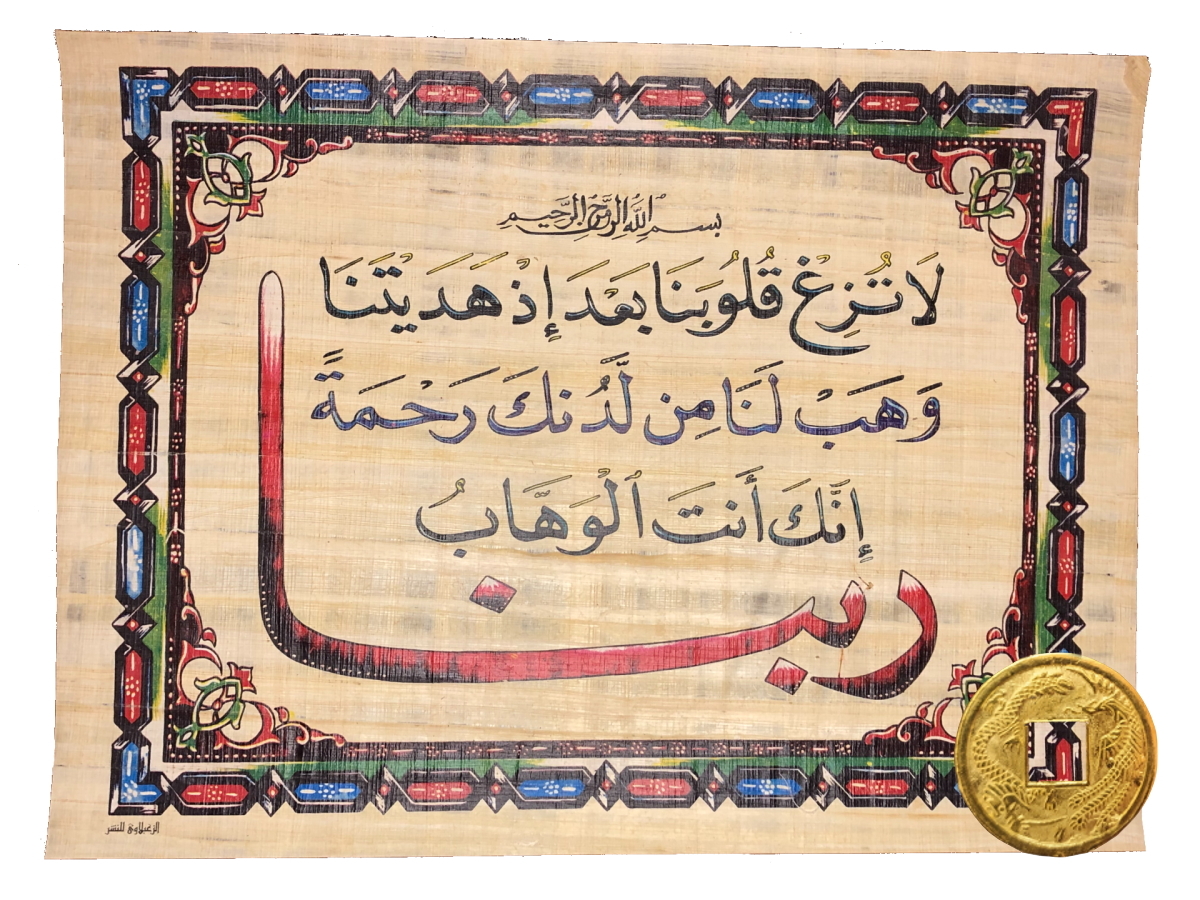 بسم الله الرحمن الرحيم
لَا تُزِغْ قُلُوبَنَا بَعْدَ إِذْ هَدَيْتَنَا
وَهَبْ لَنَا مِن لَّدُنكَ رَحْمَةً
إِنَّكَ أَنتَ ٱلْوَهَّابُ
ربنا
الزعبلاوى للنشر